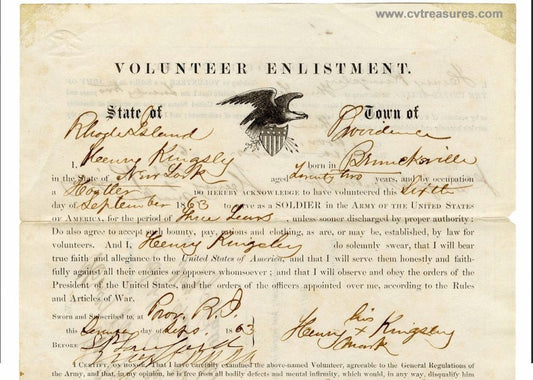 www.cvtreasures.com
VOLUNTEER ENLISTMENT.
State of Town of
Rhode Island Providence
I, Henry Kingsly born in
in the State of New York aged Twenty two years, and by occupation
a DO HEREBY ACKNOWLEDGE to have volunteered this Sixth
day of September 1863 to serve as a SOLDIER in the ARMY OF THE UNITED STATES
OF AMERICA, for the period of Three Years, unless sooner discharged by proper authority:
Do also agree to accept such bounty, pay, rations and clothing, as are, or may be, established, by law for
volunteers. And I, Henry Kingsley do solemnly swear, that I will bear
true faith and allegiance to the United States of America, and that I will serve them honestly and faith-
fully against all their enemies or opposers whomsoever; and that I will observe and obey the orders of the
President of the United States, and the orders of the officers appointed over me, according to the Rules
and Articles of War.
Sworn and Subscribed to, at Prov, R.I.
this day of Sept. 1863 his
Henry x Kingsley
BEFORE mark
I CERTIFY, ON HONOR, That I have carefully examined the above-named Volunteer, agreeable to the General Regulations of
the Army, and that, in my opinion, he is free from all bodily defects and mental infirmity, which would, in any way, disqualify him